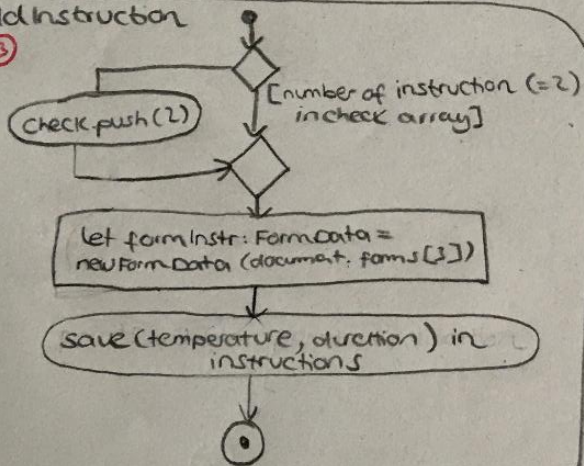 dInstruction
3
[number of instruction (=2)
in check array]
check.push(2)
let formInstr: FormData =
new FormData (document. forms[3])
save (temperature, durettion) in
instructions